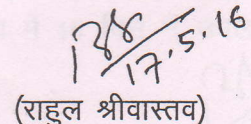 17.5.16
(राहुल श्रीवास्तव)